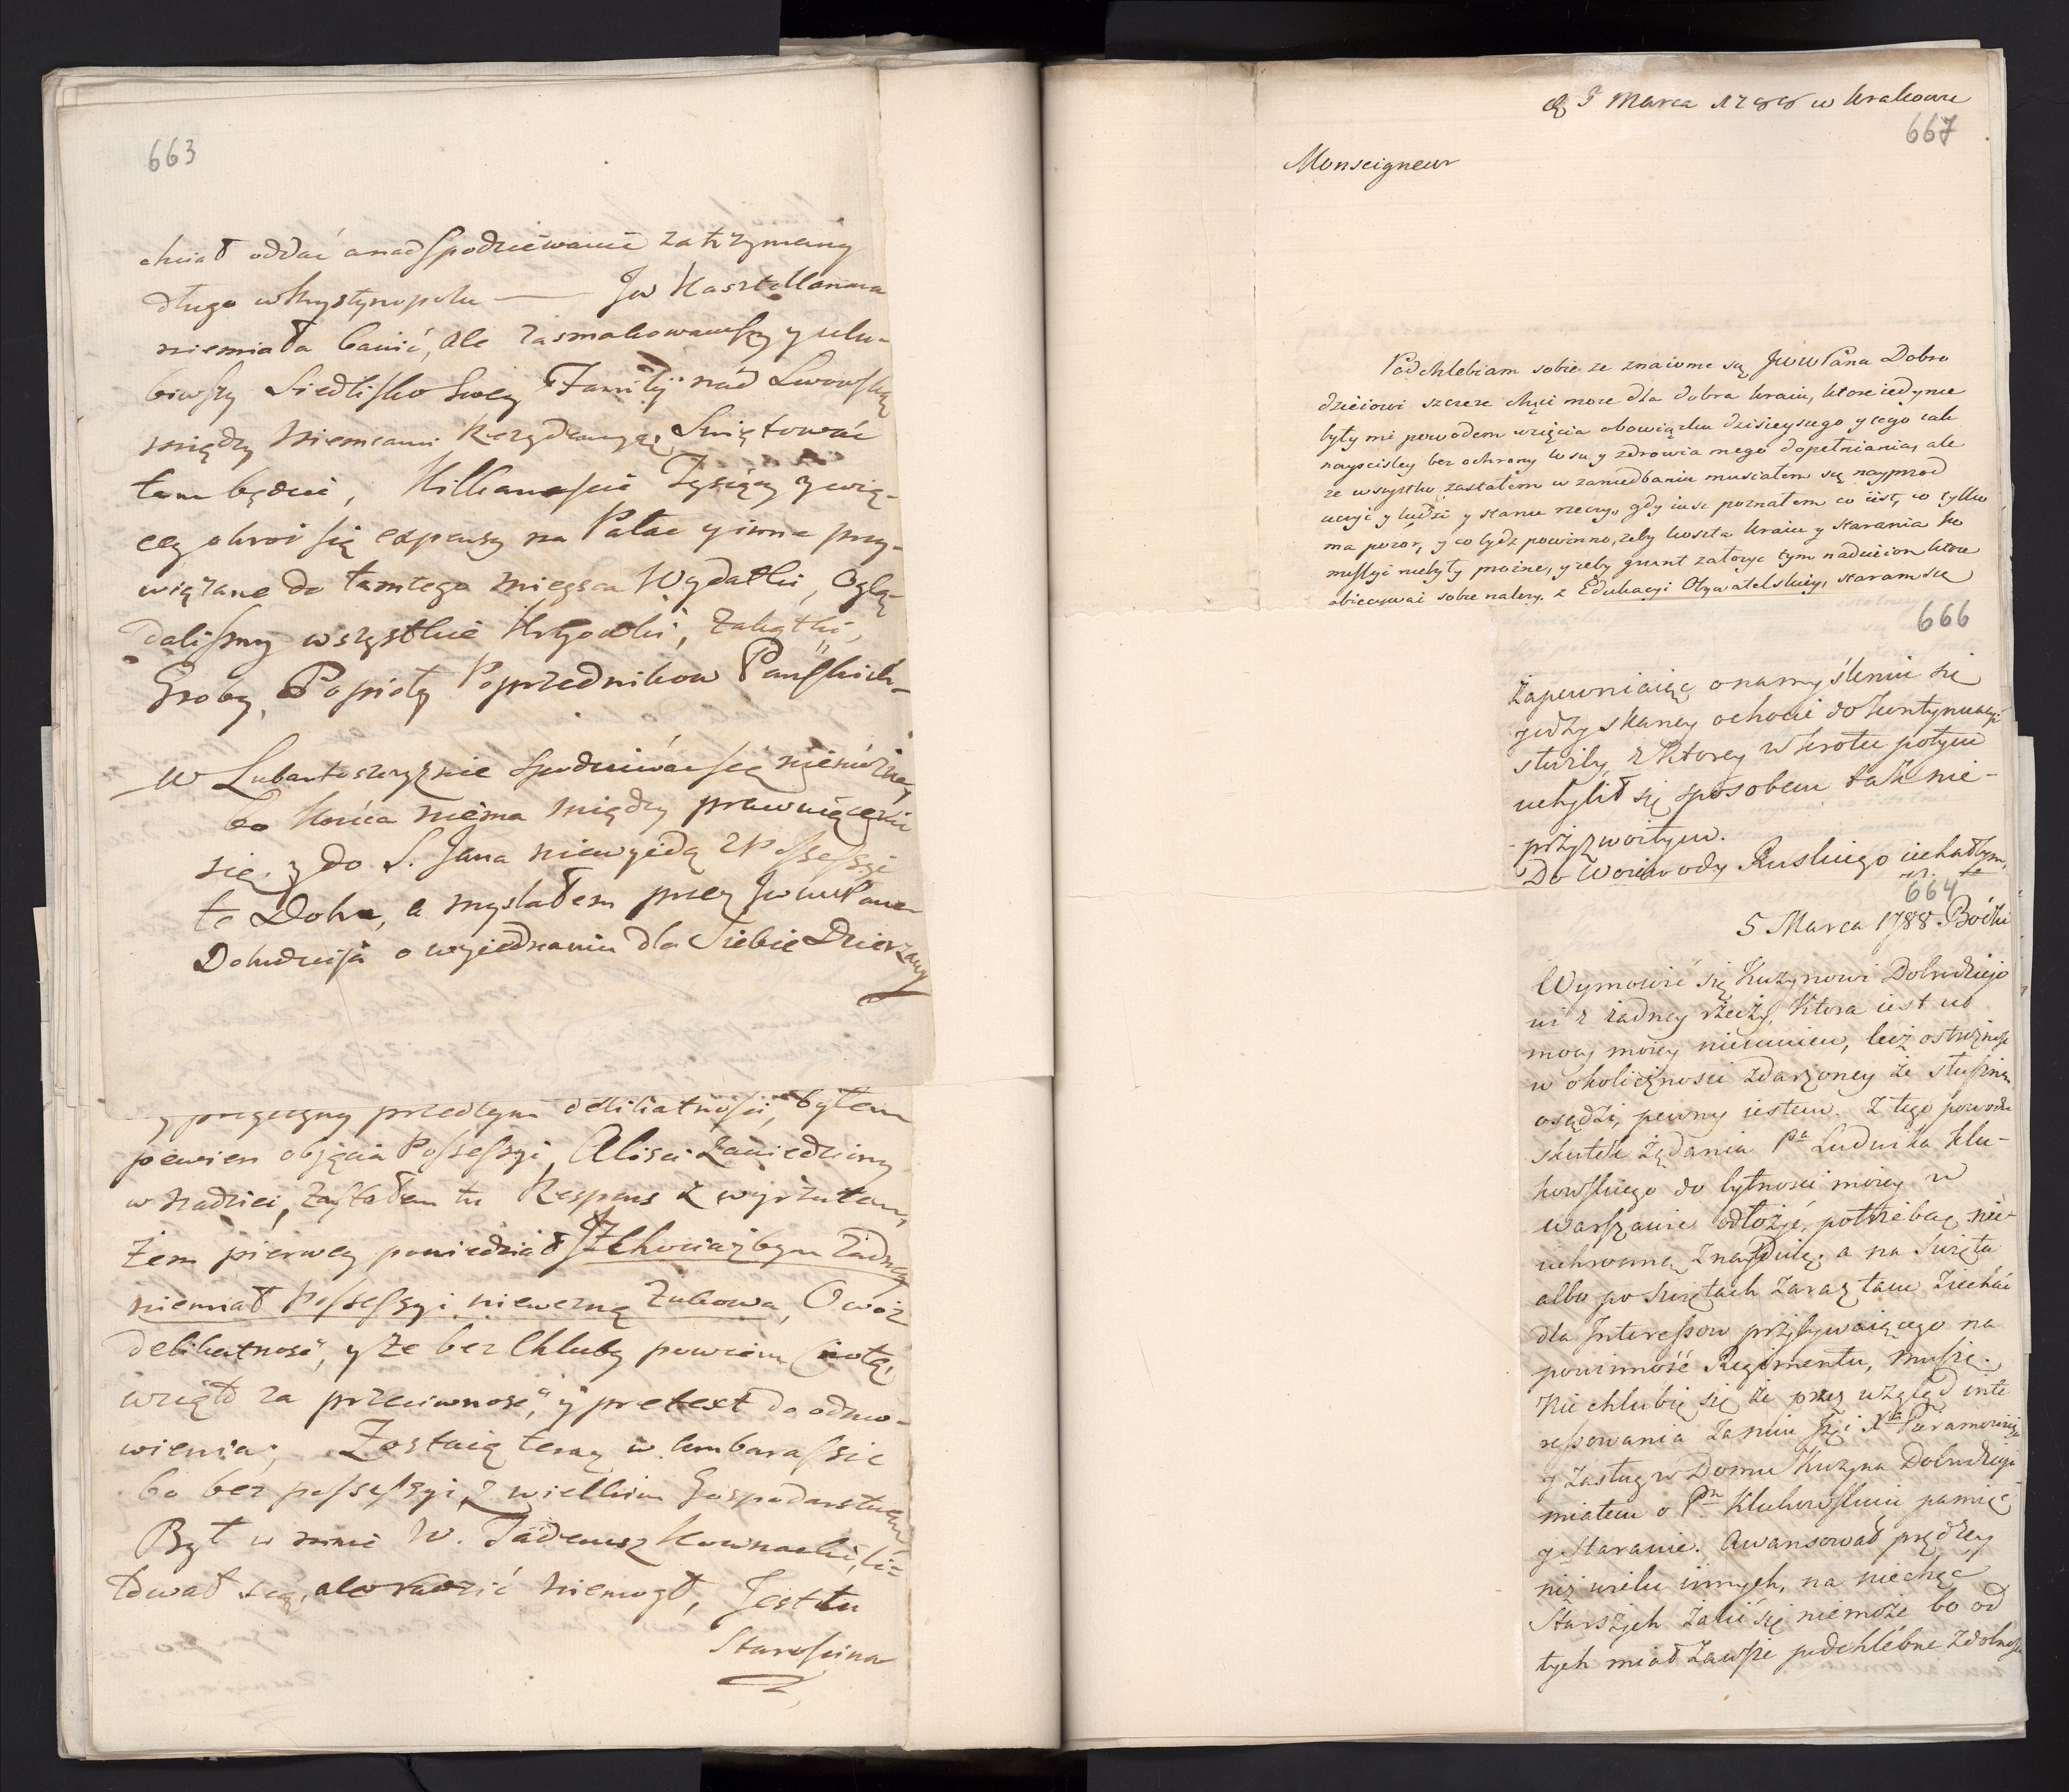 663
chciał oddać a nad spodziewanie zatrzymany
długo w Krystynopolu — Jw Kasztellanowa
niemiała bawić, ale zasmakowawszy y ulu-
biwszy Siedlisko swey Familij nad Lwowską
między Niemcami Rezydencyą, Swiętować
tam będzie, Kilkanaście Tysięcy y wię-
cey okroi się expensy na Pałac y inne przy-
wiązane do tamtego mieysca Wydatki, Oglą-
daliśmy wszystkie Zakątki,
Groby, Popioły Poprzednikow Pańskich
w Lubartowszczyznie spodziewać się niemożna
bo końca niema między prawuiącemi
się, y do S. Jana niewyidą z Possessyi
te Dobra, a myslałem przez Jww Pana
Dobrodzieja o wyiednaniu dla Siebie Dzierżawy
y przyczyny przedtym delikatności, byłem
pewien objęcia Possessyi, Alisci zawiedziony
w Nadziei, zastałem tu Respons z wyrzutem,
żem pierwey powiedział Jż Chociażbym żadney
niemiał Possessyi niewezmę Zukowa, Owóz
delikatność, y że bez Chluby powiem Cnotę,
wziął za przeciwność, y pretext do odmo-
wienia; Zostaię teraz w embarassie
bo bez possessyi z wielkim Gospodarstwem
Był u mnie W. Tadeusz Kownacki, li-
tował się, ale radzić niemogł, Jest tu
Starościna
d 5 Marca 1788 w Krakowie
667
Monseigneur
Podchlebiam sobie ze znaiome są JwwPana Dobro
dzieiowi szczere chęci moie dla dobra kraiu, ktore iedynie
były mi powodem wzięcia obowiązku dzisieyszego y iego iak
nayscisley bez ochrony losu y zdrowia mego dopełniania, ale
ze wszystko zastałem w zaniedbaniu musiałem się nayprzod
uczyć y ludzi y stanu rzeczy, gdy iusz poznałem co iest, co tylko
ma pozor, y co bydz powinno, zeby koszta kraiu y starania Ko
missyi niebyły prozne, y zeby grunt załozyc tym nadzieiom ktore
obiecywać sobie nalezy z Edukacyi Obywatelskiey, staram się
666
Zapewniaiąc o namyśleniu się
y odzyskaney ochocie do kontynuacyi
służby, z Ktorey w krotce potym
uchylił się sposobem tak nie-
przyzwoitym.
Do Woiewody Ruskiego iechałbym,
664
5 Marca 1788 Boćki
Wymowić się Kuzynowi Dobrodziejo
wi z żadney rzeczy, Ktora iest w
mocy moiey nieumiem, lecz ostrożność
w okoliczności zdarzoney że słuszną
osądzi, pewny iestem. Z tego powodu
skutek żądania Pa Ludwika Klu-
kowskiego do bytności moiey w
Warszawie odłożyć, potrzebę nie-
uchronną znayduię; a na święta
albo po świętach zaraz tam ziechać
dla Interessow przyspywaiącego na
powinność Regimentu, muszę.
Nie chlubię się że przez wzgląd inte
ressowania za nim Jx Piramowicza
y zasług w Domu Kuzyna Dobrodzieja
miałem o Pn Klukowskim pamięć
y staranie. Awansował prędzey
niż wielu innych, na niechęć
Starszych żalić się niemoże bo od
tych miał zawsze podchlebne zdolności